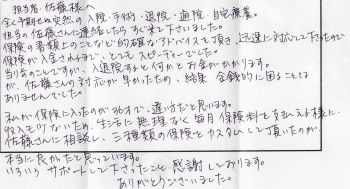 担当者、佐藤様へ
全く予期せぬ突然の入院・手術・退院・通院、自宅療養。
担当の佐藤さんに連絡したらすぐ来て下さいました。
保険の書類上のことなど的確なアドバイスを頂き、迅速に対応して下さったので
保険が入金されるまで、とてもスピーディーでした。
当り前のことですが、入退院すると何かとお金がかかります。
が、佐藤さんの対応が早かったため、結果、金銭的に困ることは
ありませんでした。
私が保険に入ったのが36才で、遅い方だと思います。
収入も少ないため、生活に無理なく毎月保険料を支払える様に
佐藤さんに相談し、三種類の保険をカスタムして頂いたのが、
本当に良かったと思っています。
いろいろサポートして下さったこと感謝しております。
ありがとうございました。